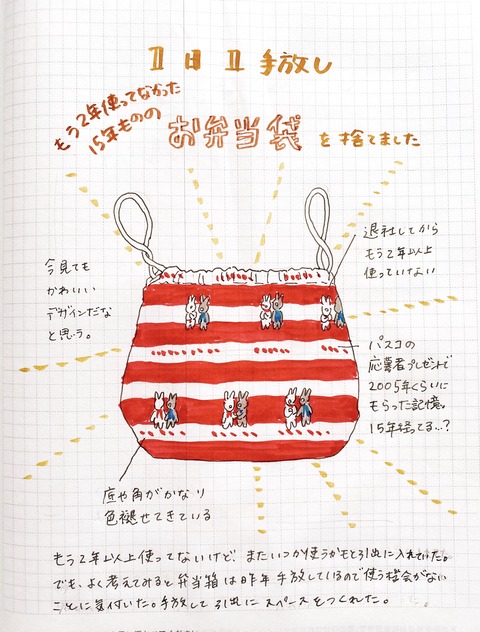 1日1手放し
もう2年使ってなかった
15年ものの
お弁当袋を捨てました
退社してから
もう2年以上
使っていない
今見ても
かわいい
デザインだな
と思う。
パスコの
応募者プレゼントで
2005年くらいに
もらった記憶。
15年経ってる…?
底や角がかなり
色褪せてきている
もう2年以上使ってないけど、またいつか使うかもと引出に入れていた。
でも、よく考えてみると弁当箱は昨年手放しているので使う機会がない
ことに気付いた。手放して引出にスペースをつくれた。